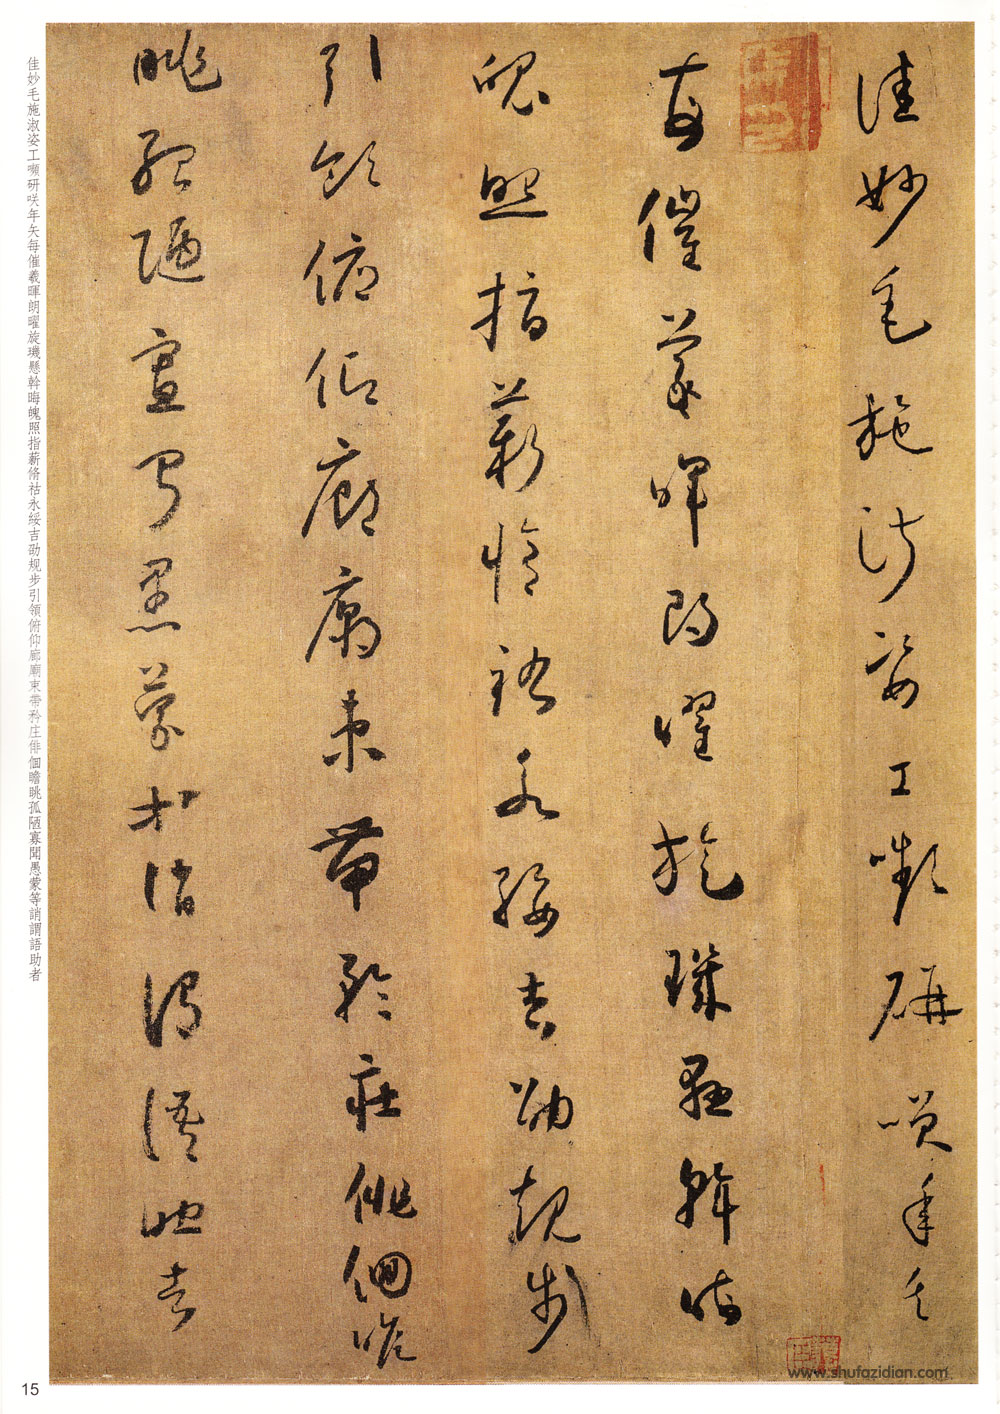 佳妙毛施淑姿工嚬研咲年矢
每催羲暉朗曜旋璣懸斡晦
魄照指薪脩祜永綏吉劭規步
引領俯仰廊廟束帶矜庄俳佪瞻
眺孤陋寡聞愚蒙等誚謂語助者
佳妙毛施淑姿工嚬研咲年矢每催羲暉朗曜旋璣懸斡晦魄照指薪脩祜永綏吉劭规步引領俯仰廊廟束帶矜庄俳佪瞻眺孤陋寡聞愚蒙等誚謂語助者
15
www.shufazidian.com